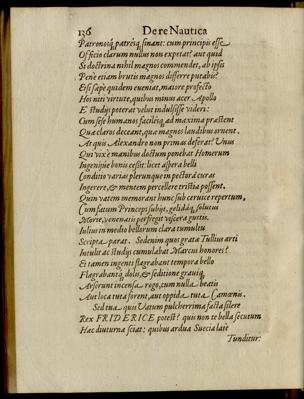 136 De re Nautica
Patronoiq́; patréiq́; sinant: cum principis esse
Officio clarum nullus non expetat? aut quid
Si doctrina nihil magnos commendet, ab ipsis
Penè etiam brutis magnos differre putabis?
Etsi sæpè quidem eueniat, maiore profecto
Hos niti virtute, quibus minus acer Apollo
E studijs poterat velut indulsisse videri:
Cum sese humanos faciléiq́; ad maxima præstent
Quæ claros deceant, quæ magnos laudibus ornent.
At quis Alexandro non primas deferat? Unus
Qui vixè manibus doctum ponebat Homerum
Ingeniisue bonis cessit: licet aspera belli
Conditio varias plerunque in pectora curas
Ingerere, & mentem percellere tristia possent.
Quin vatem memorant hunc sub ceruice repertum,
Cum fatum Princeps subijt, gelidáq́; solutus
Morte, venenati perfregit viscera guttis.
Iulius in medio bellorum clara tumultu
Scripta parat. Sed enim quos grata Tullius arti
Intulit ac studijs cumulabat Marcus honores?
Et tamen ingenti flagrabant tempora bello
Flagrabantq́; dolis, & seditione grauiq́;
Arserunt incensa rogo, cum nulla beatis
Aut loca tuta forent, aut oppida tuta Camœnis.
Sed tua quis Vatum pulcherrima facta silere
Rex FRIDERICE potest? quis non te bella secutum
Hac diuturna sciat: quibus ardua Suecia latè
Tunditur: